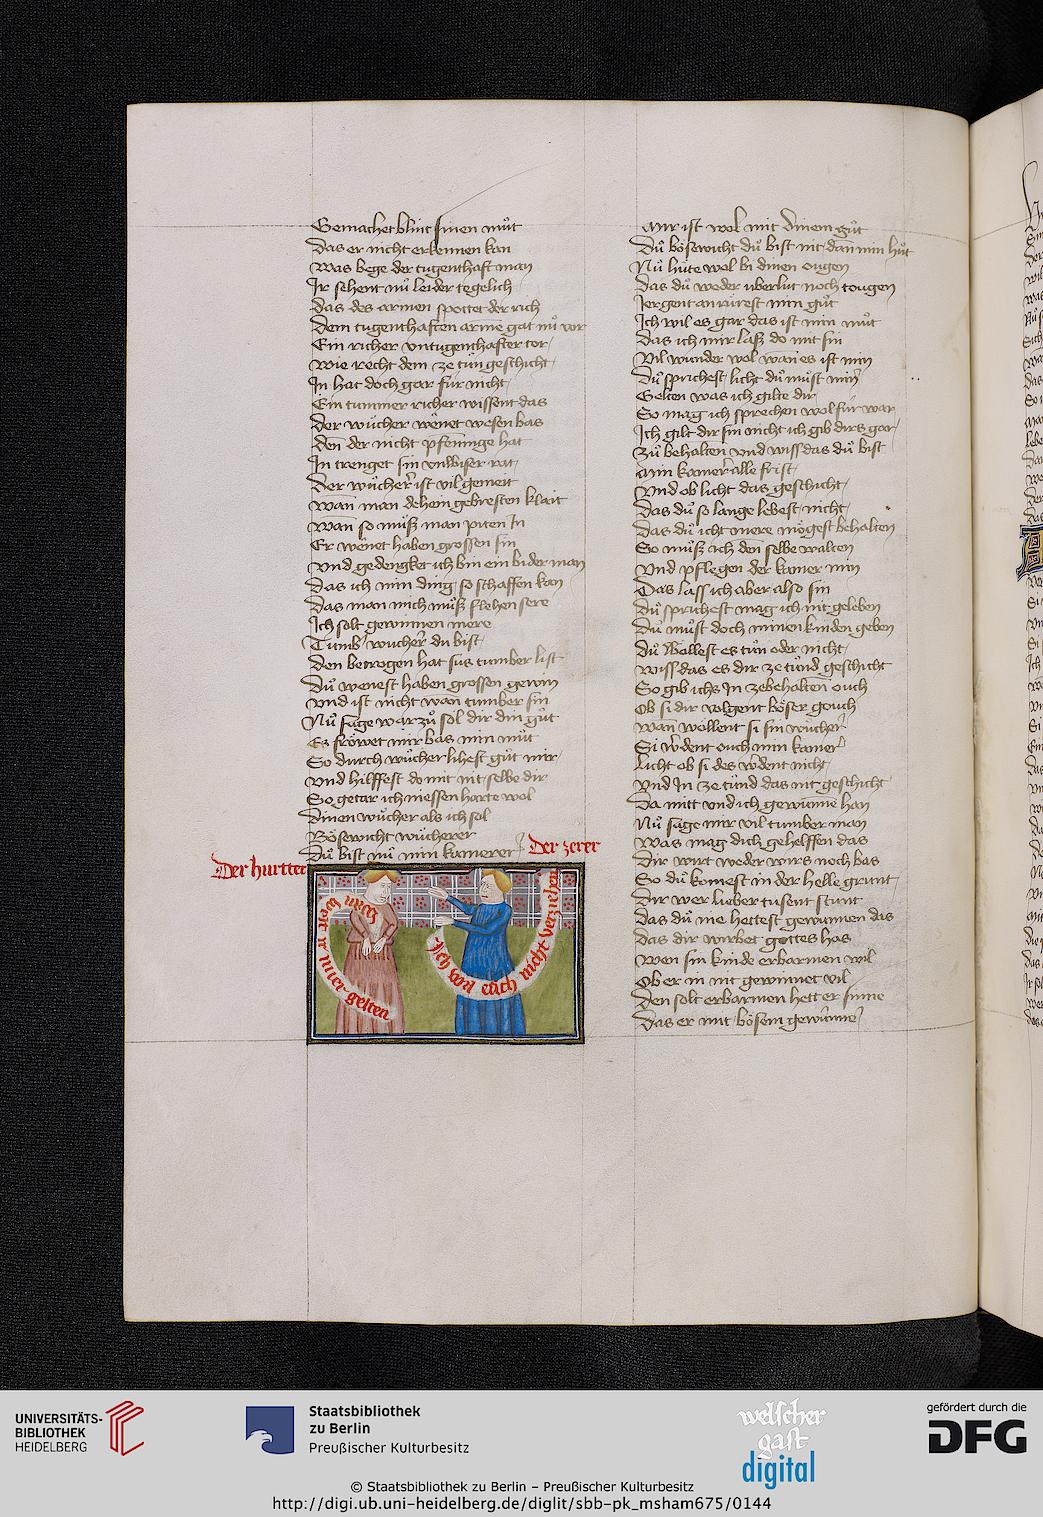 Gemachet blint sinen muͦt
Das er nicht erkennen kan
Was bege der tugenthaft man
Ir sehent nuͦ leider tegelich
Das des armen spottet der rich
Dem tugenthaften arme gat nuͦ vor
Ein richer vntugenthafter tor
Wie recht dem ze tuͤn geschicht
In hat doch gar fuͤr nicht
Ein tummer richer wissent das
Der wuͦcher wenet wesen bas
Den der nicht pfeninge hat
In trenget sin vnwiser rat
Der wuͦcherer ist vil gemeit
Wan man dehein gebresten kleit
Wan so muͦß man piten In
Er wenet haben grossen sin
Vnd gedenget ich bin ein bider man
Das ich min ding so schaffen kan
Das man mich muͦß flehen sere
Ich solt gewinnen mere
Tumb wuͦcherer du bist
Den betrogen hat sus tumber list
Duͦ wenest haben grossen gewin
Vnd ist nicht wan tumber sin
Nuͦ sage war zuͦ sol dir din guͦt
Es froͤwet mir bas min muͦt
So durch wuͦcher lihest guͦt mir
Vnd hilffest do mit nit selbe dir
So getar ich niessen harte wol
Dinen wuͦcher als ich sol
Boͤsewicht wuͦcherer
Duͦ bist nuͦ min kamerer
Der zerer
Der hurtter
wenn
welt ir mir gelten
Ich wil euch nicht verziehen
Mir ist wol mit dinem guͦt
Duͦ boͤsewicht duͦ bist nit dan min huͦt
Nuͦ huͤte wol bi dinen ougen
Das duͦ weder uberlut noch tougen
Iergent anruͤrest min guͦt
Ich wil es gar das ist min muͦt
Das ich mir laß do mit sin
Vil wunder wol wan es ist min
Duͦ sprichest licht duͦ muͦst mir
Gelten was ich gilte dir
So mag ich sprechen wol fuͤr war
Ich gilt dir sin nicht ich gib dirs gar
Zuͦ behalten vnd wiss das duͦ bist
Min kamerer alle frist
Vnd ob licht das geschicht
Das duͦ so lange lebest nicht
Das duͦ icht mere moͤgest behalten
So muͦß ich den selbe walten
Vnd pflegen der kamer min
Das lass ich aber also sin
Duͦ sprichest mag ich nit geleben
Duͦ muͦst doch minen kinden geben
Duͦ wellest es tuͦn oder nicht
Wiss das es dir ze tuͦnd geschicht
So gib ichs In zebehalten ouch
Ob si dir volgent boͤser gouch
Wan wollent si sin wuͦcherer
Si wˀdent ouch min kamerer
Licht ob si des wˀdent nicht
Vnd In ze tuͦnd das nit geschicht
Da mitt vnd ich gewunne han
Nuͦ sage mir vil tumber man
Was mag dich gehelffen das
Dir wirt weder wirs noch bas
So duͦ komest in der helle grunt
Dir wer lieber tusent stunt
Das duͦ nie hettest gewunnen das
Das dir wirbet gottes has
Wen sin kinde erbarmen wil
Ob er in nit gewinnet vil
Den solt erbarmen hett er sinne
Das er mit boͤsem gewinne
UNIVERSITÄTS-
BIBLIOTHEK
HEIDELBERG
Staatsbibliothek
zu Berlin
Preußischer Kulturbesitz
welscher
gast
digital
gefördert durch die
DFG
© Staatsbibliothek zu Berlin – Preußischer Kulturbesitz
http://digi.ub.uni-heidelberg.de/diglit/sbb-pk_msham675/0144